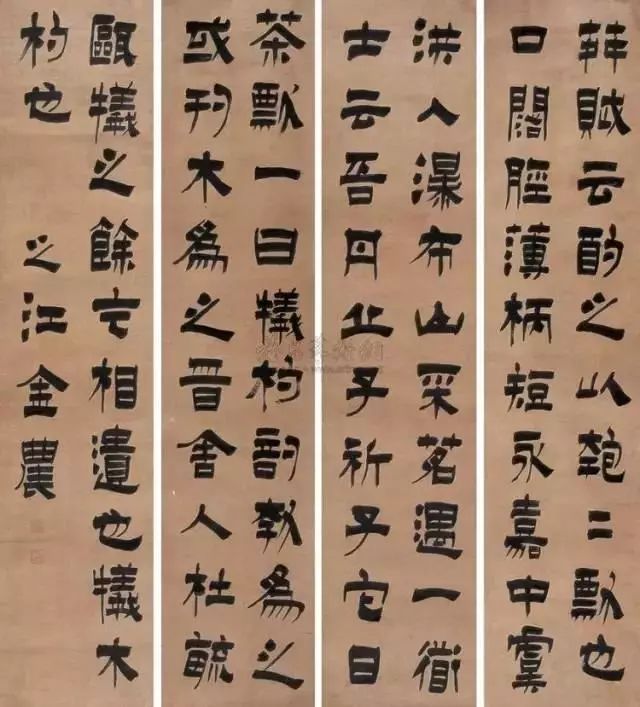 荈賦云酌之以匏〻瓢也
口闊脛薄柄短永嘉中虞
洪入瀑布山采茗遇一道
士云吾丹丘子祈子它日
茶瓢一曰犧杓剖瓠為之
或刊木為之晉舍人杜毓
甌犧之餘乞相遺也犧木
杓也 之江金農